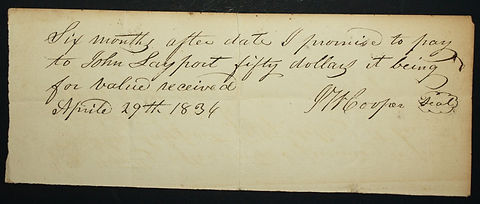 Six months after date I promise to pay
to John Layport fifty dollars it being
for value received
Aprile 29th 1836 J W Cooper Seal